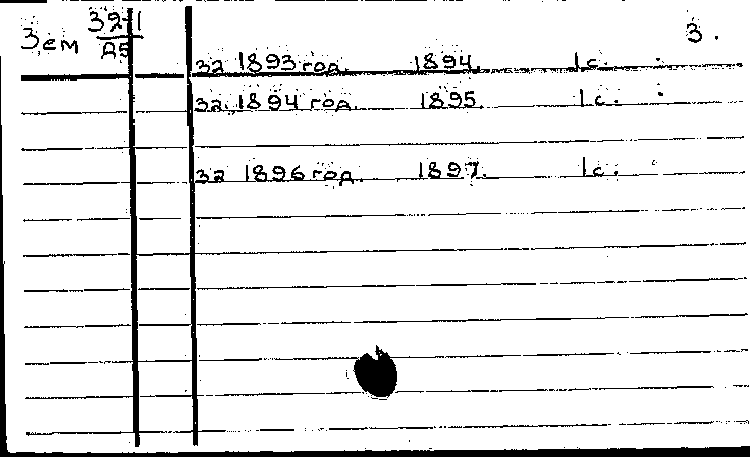 Зем 32-1 3.
А5
за 1893 год. 1894. 1с.
за 1894 год. 1895. 1с.
за 1896 год. 1897. 1с.